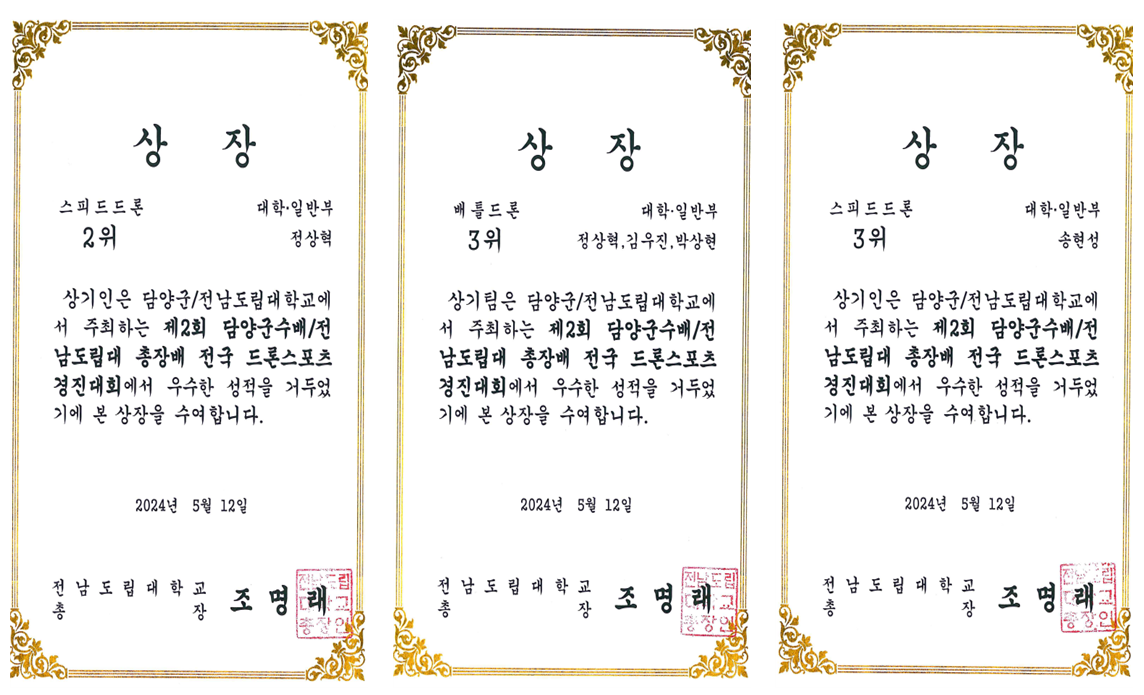 상 장
스피드드론 대학·일반부
2위 정상혁
상기인은 담양군/전남도립대학교에
서 주최하는 제2회 담양군수배/전
남도립대 총장배 전국 드론스포츠
경진대회에서 우수한 성적을 거두었
기에 본 상장을 수여합니다.
2024년 5월 12일
전남도립대학교
총장 조명래
전남도립
대학교
총장인
상 장
배틀드론 대학·일반부
3위 정상혁,김우진,박상현
상기팀은 담양군/전남도립대학교에
서 주최하는 제2회 담양군수배/전
남도립대 총장배 전국 드론스포츠
경진대회에서 우수한 성적을 거두었
기에 본 상장을 수여합니다.
2024년 5월 12일
전남도립대학교
총장 조명래
전남도립
대학교
총장인
상 장
스피드드론 대학·일반부
3위 송현성
상기인은 담양군/전남도립대학교에
서 주최하는 제2회 담양군수배/전
남도립대 총장배 전국 드론스포츠
경진대회에서 우수한 성적을 거두었
기에 본 상장을 수여합니다.
2024년 5월 12일
전남도립대학교
총장 조명래
전남도립
대학교
총장인